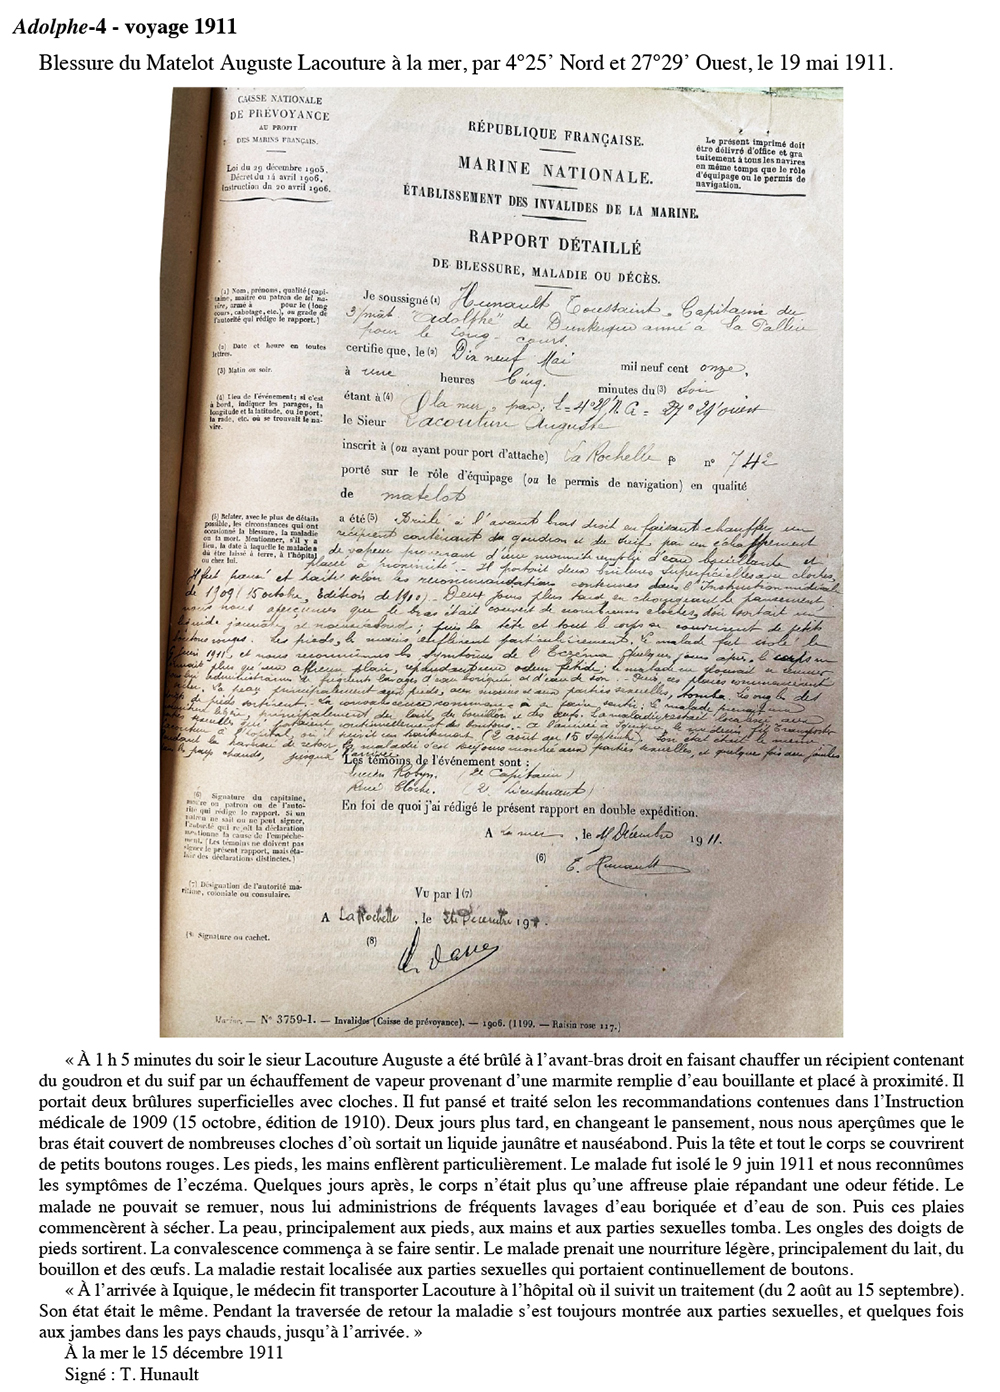 Adolphe-4 - voyage 1911
Blessure du Matelot Auguste Lacouture à la mer, par 4°25’ Nord et 27°29’ Ouest, le 19 mai 1911.
CAISSE NATIONALE
DE PRÉVOYANCE
AU PROFIT
DES MARINS FRANÇAIS.
Loi du 29 décembre 1905.
Décret du 14 avril 1906.
Instruction du 20 avril 1906.
RÉPUBLIQUE FRANÇAISE.
MARINE NATIONALE.
ÉTABLISSEMENT DES INVALIDES DE LA MARINE.
RAPPORT DÉTAILLÉ
DE BLESSURE, MALADIE OU DÉCÈS.
Le présent imprimé doit
être délivré d'office et gra
tuitement à tous les navires
en même temps que le rôle
d'équipage ou le permis de
navigation.
(1) Nom, prénoms, qualité (capi-
taine, maître ou patron de tel na-
vire, armé à pour le (long
cours, cabotage, etc.), ou grade de
l'autorité qui rédige le rapport.)
(2) Date et heure en toutes
lettres.
(3) Matin ou soir.
(4) Lieu de l'événement; si c'est
à bord, indiquer les parages, la
longitude et la latitude, ou le port,
la rade, etc. où se trouvait le na-
vire.
Je soussigné (1) Hunault Toussaint, Capitaine du
3/mât "Adolphe" de Dunkerque armé à La Pallice
pour le Long-cours.
certifie que, le (2) Dix neuf Mai mil neuf cent onze,
à une heures Cinq minutes du (3) Soir
étant à (4) la mer, par: L= 4°25' N G= 27°29' ouest
le Sieur Lacouture Auguste
inscrit à (ou ayant pour port d'attache) La Rochelle n° 742
porté sur le rôle d'équipage (ou le permis de navigation) en qualité
de matelot
(5) Relater, avec le plus de détails
possible, les circonstances qui ont
occasionné la blessure, la maladie
ou la mort. Mentionner, s'il y a
lieu, la date à laquelle le malade a
dû être laissé à terre, à l'hôpital
ou chez lui.
a été (5) Brûlé à l'avant bras droit en faisant chauffer un
récipient contenant du goudron et du suif par un échauffement
de vapeur provenant d'une marmite remplie d'eau bouillante et
placé à proximité. - Il portait deux brûlures superficielles avec cloches.
Il fut pansé et traité selon les recommandations contenues dans l'Instruction médicale
de 1909 (15 octobre, Edition de 1910). Deux jours plus tard en changeant le pansement
nous nous aperçûmes que le bras était couvert de nombreuses cloches d'où sortait un
liquide jaunâtre et nauséabond; puis la tête et tout le corps se couvrirent de petits
boutons rouges. Les pieds, les mains enflèrent particulièrement. Le malade fut isolé le
9 juin 1911 et nous reconnûmes les symptômes de l'Eczéma. Quelques jours après, le corps n'
était plus qu'une affreuse plaie, répandant une odeur fétide. Le malade ne pouvait se remuer
nous lui administrions de fréquents lavages d'eau boriquée et d'eau de son. - Puis ces plaies commencèrent
à sécher. La peau principalement aux pieds, aux mains et aux parties sexuelles, tomba. Les ongles des
doigts de pieds sortirent. La convalescence commença à se faire sentir. Le malade prenait une
nourriture légère, principalement du lait, du bouillon et des œufs. La maladie restait localisée aux
parties sexuelles qui portaient continuellement des boutons. - A l'arrivée à Iquique, le médecin fit transporter
Lacouture à l'hôpital, où il suivit un traitement (2 août au 15 septembre). Son état était le même
Pendant la traversée de retour, la maladie s'est toujours montrée aux parties sexuelles, et quelques fois aux jambes
dans les pays chauds, jusqu'à l'arrivée.
Les témoins de l'événement sont :
(2e Capitaine)
René Cloche. (2e Lieutenant)
En foi de quoi j'ai rédigé le présent rapport en double expédition.
A la mer, le 15 Décembre 1911.
(6) T. Hunault
(6) Signature du capitaine,
maître ou patron ou de l'auto-
rité qui rédige le rapport. Si un
patron ne sait ou ne peut signer,
l'autorité qui reçoit la déclaration
mentionne la cause de l'empêche-
ment. (Les témoins ne doivent pas
signer le présent rapport, mais éta-
blir des déclarations distinctes.)
(7) Désignation de l'autorité ma-
ritime, coloniale ou consulaire.
Vu par l (7)
A La Rochelle, le Décembre 191 .
(8)
(8) Signature ou cachet.
Marine. — N° 3759-1. — Invalides (Caisse de prévoyance). — 1906. (1199. — Raisin rose 117.)
« À 1 h 5 minutes du soir le sieur Lacouture Auguste a été brûlé à l’avant-bras droit en faisant chauffer un récipient contenant
du goudron et du suif par un échauffement de vapeur provenant d’une marmite remplie d’eau bouillante et placé à proximité. Il
portait deux brûlures superficielles avec cloches. Il fut pansé et traité selon les recommandations contenues dans l’Instruction
médicale de 1909 (15 octobre, édition de 1910). Deux jours plus tard, en changeant le pansement, nous nous aperçûmes que le
bras était couvert de nombreuses cloches d’où sortait un liquide jaunâtre et nauséabond. Puis la tête et tout le corps se couvrirent
de petits boutons rouges. Les pieds, les mains enflèrent particulièrement. Le malade fut isolé le 9 juin 1911 et nous reconnûmes
les symptômes de l’eczéma. Quelques jours après, le corps n’était plus qu’une affreuse plaie répandant une odeur fétide. Le
malade ne pouvait se remuer, nous lui administrions de fréquents lavages d’eau boriquée et d’eau de son. Puis ces plaies
commencèrent à sécher. La peau, principalement aux pieds, aux mains et aux parties sexuelles tomba. Les ongles des doigts de
pieds sortirent. La convalescence commença à se faire sentir. Le malade prenait une nourriture légère, principalement du lait, du
bouillon et des œufs. La maladie restait localisée aux parties sexuelles qui portaient continuellement de boutons.
« À l’arrivée à Iquique, le médecin fit transporter Lacouture à l’hôpital où il suivit un traitement (du 2 août au 15 septembre).
Son état était le même. Pendant la traversée de retour la maladie s’est toujours montrée aux parties sexuelles, et quelques fois
aux jambes dans les pays chauds, jusqu’à l’arrivée. »
À la mer le 15 décembre 1911
Signé : T. Hunault